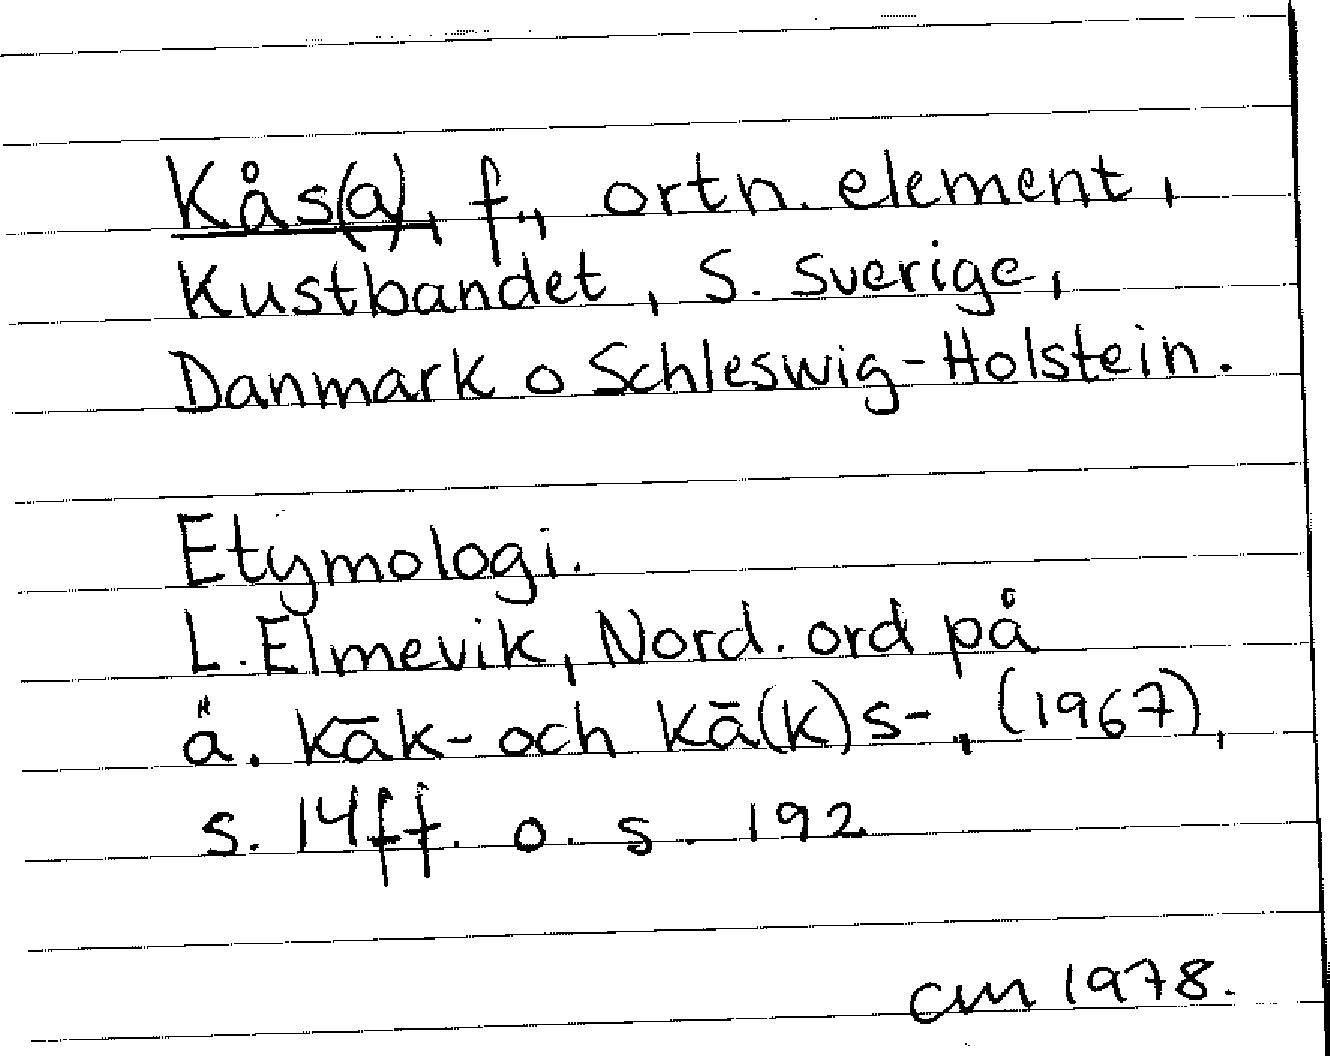 Kås(a), f., ortn. element,
Kustbandet, S. Sverige,
Danmark o Schleswig-Holstein.
Etymologi.
L. Elmevik, Nord. ord på
ä. kāk- och kā(k)s-, (1967),
s. 14ff. o. s. 192
cm 1978.